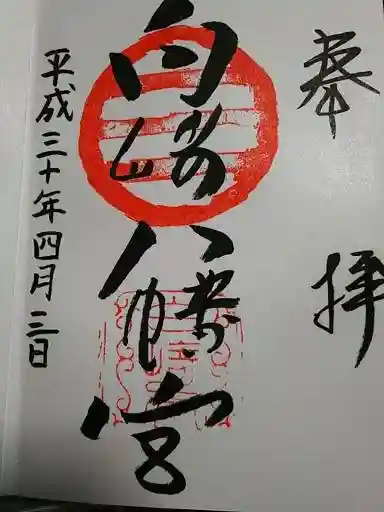 奉拝
向山崎八幡宮
平成三十年四月三日